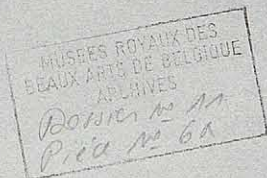 MUSEES ROYAUX DES
BEAUX ARTS DE BELGIQUE
ARCHIVES
Dossier № 11
Pièce № 6a